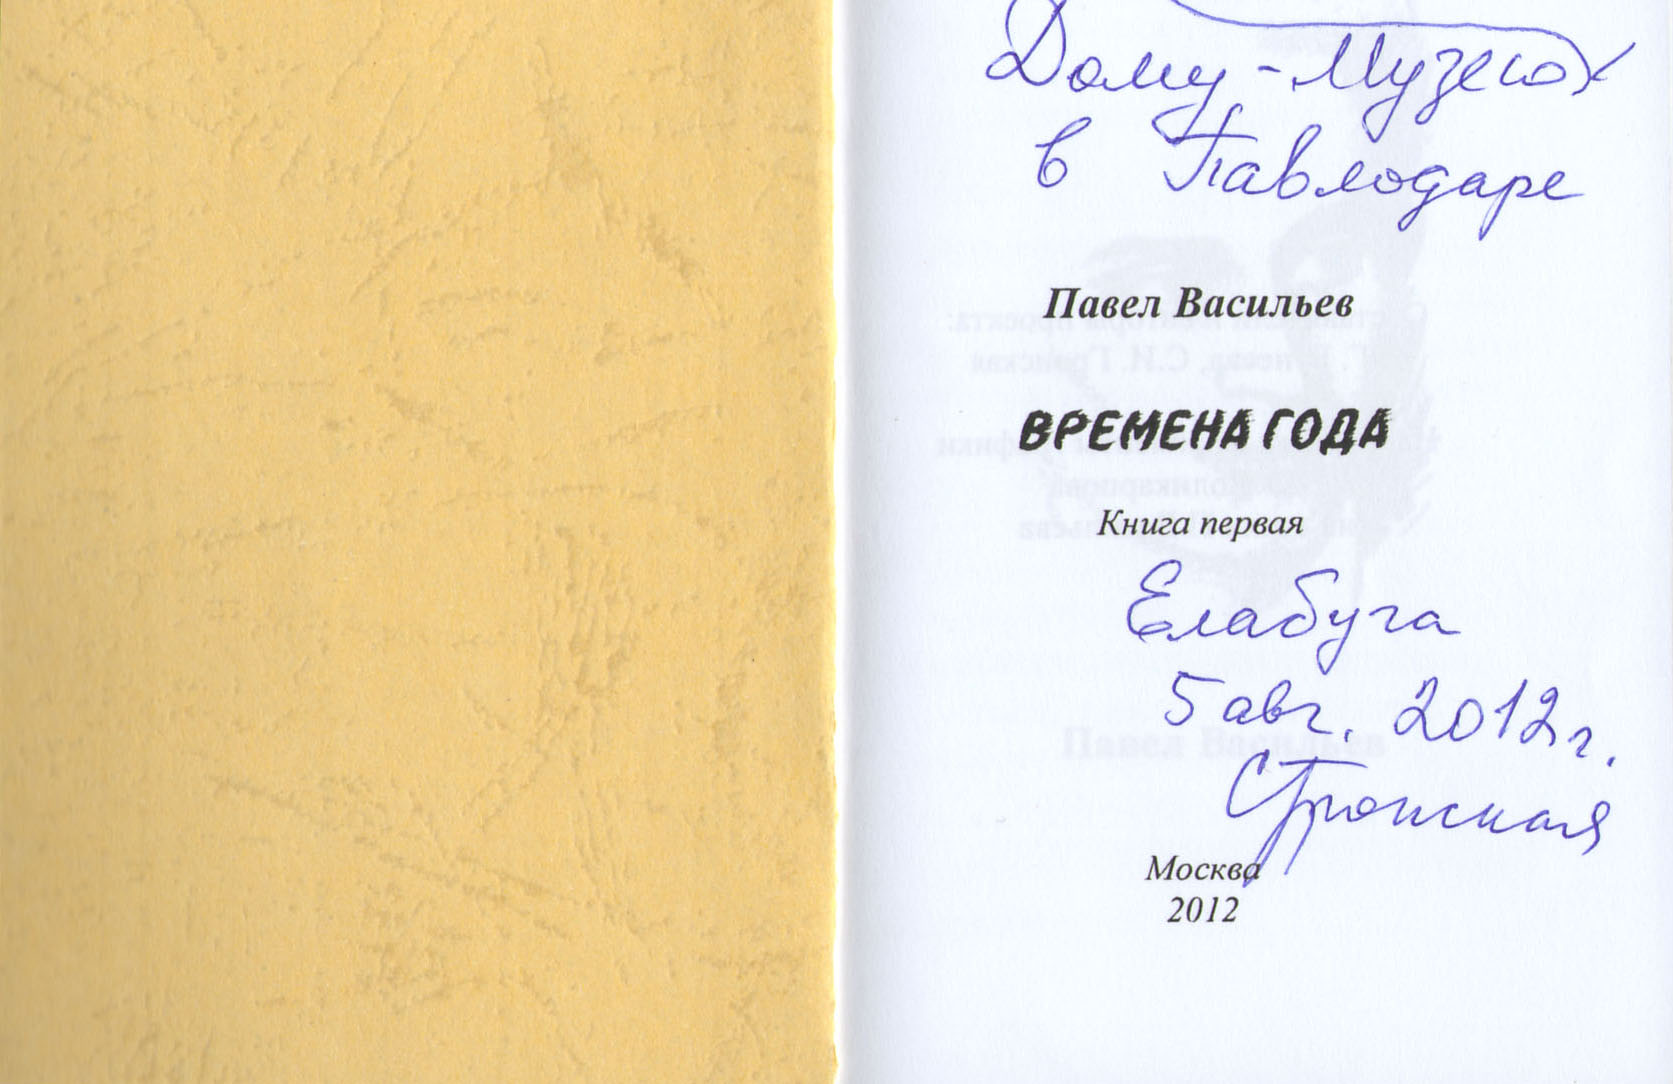 Дому-Музею
в Павлодаре
Павел Васильев
ВРЕМЕНА ГОДА
Книга первая
Елабуга
5 авг. 2012 г.
Москва
2012